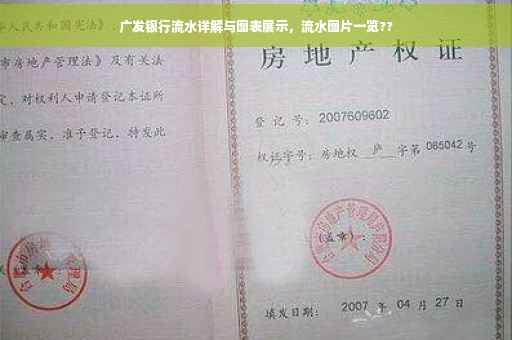 广发银行流水详解与图表展示，流水图片一览??
市房地产管理法》及有关法
定，对权利人申请登记本证所
审查属实，准予登记，特发此
房地产权证
登记号：2007609602
权证字号：房地权 庐 字第 085042 号
（盖章）：
填发日期：2007 年 04 月 27 日